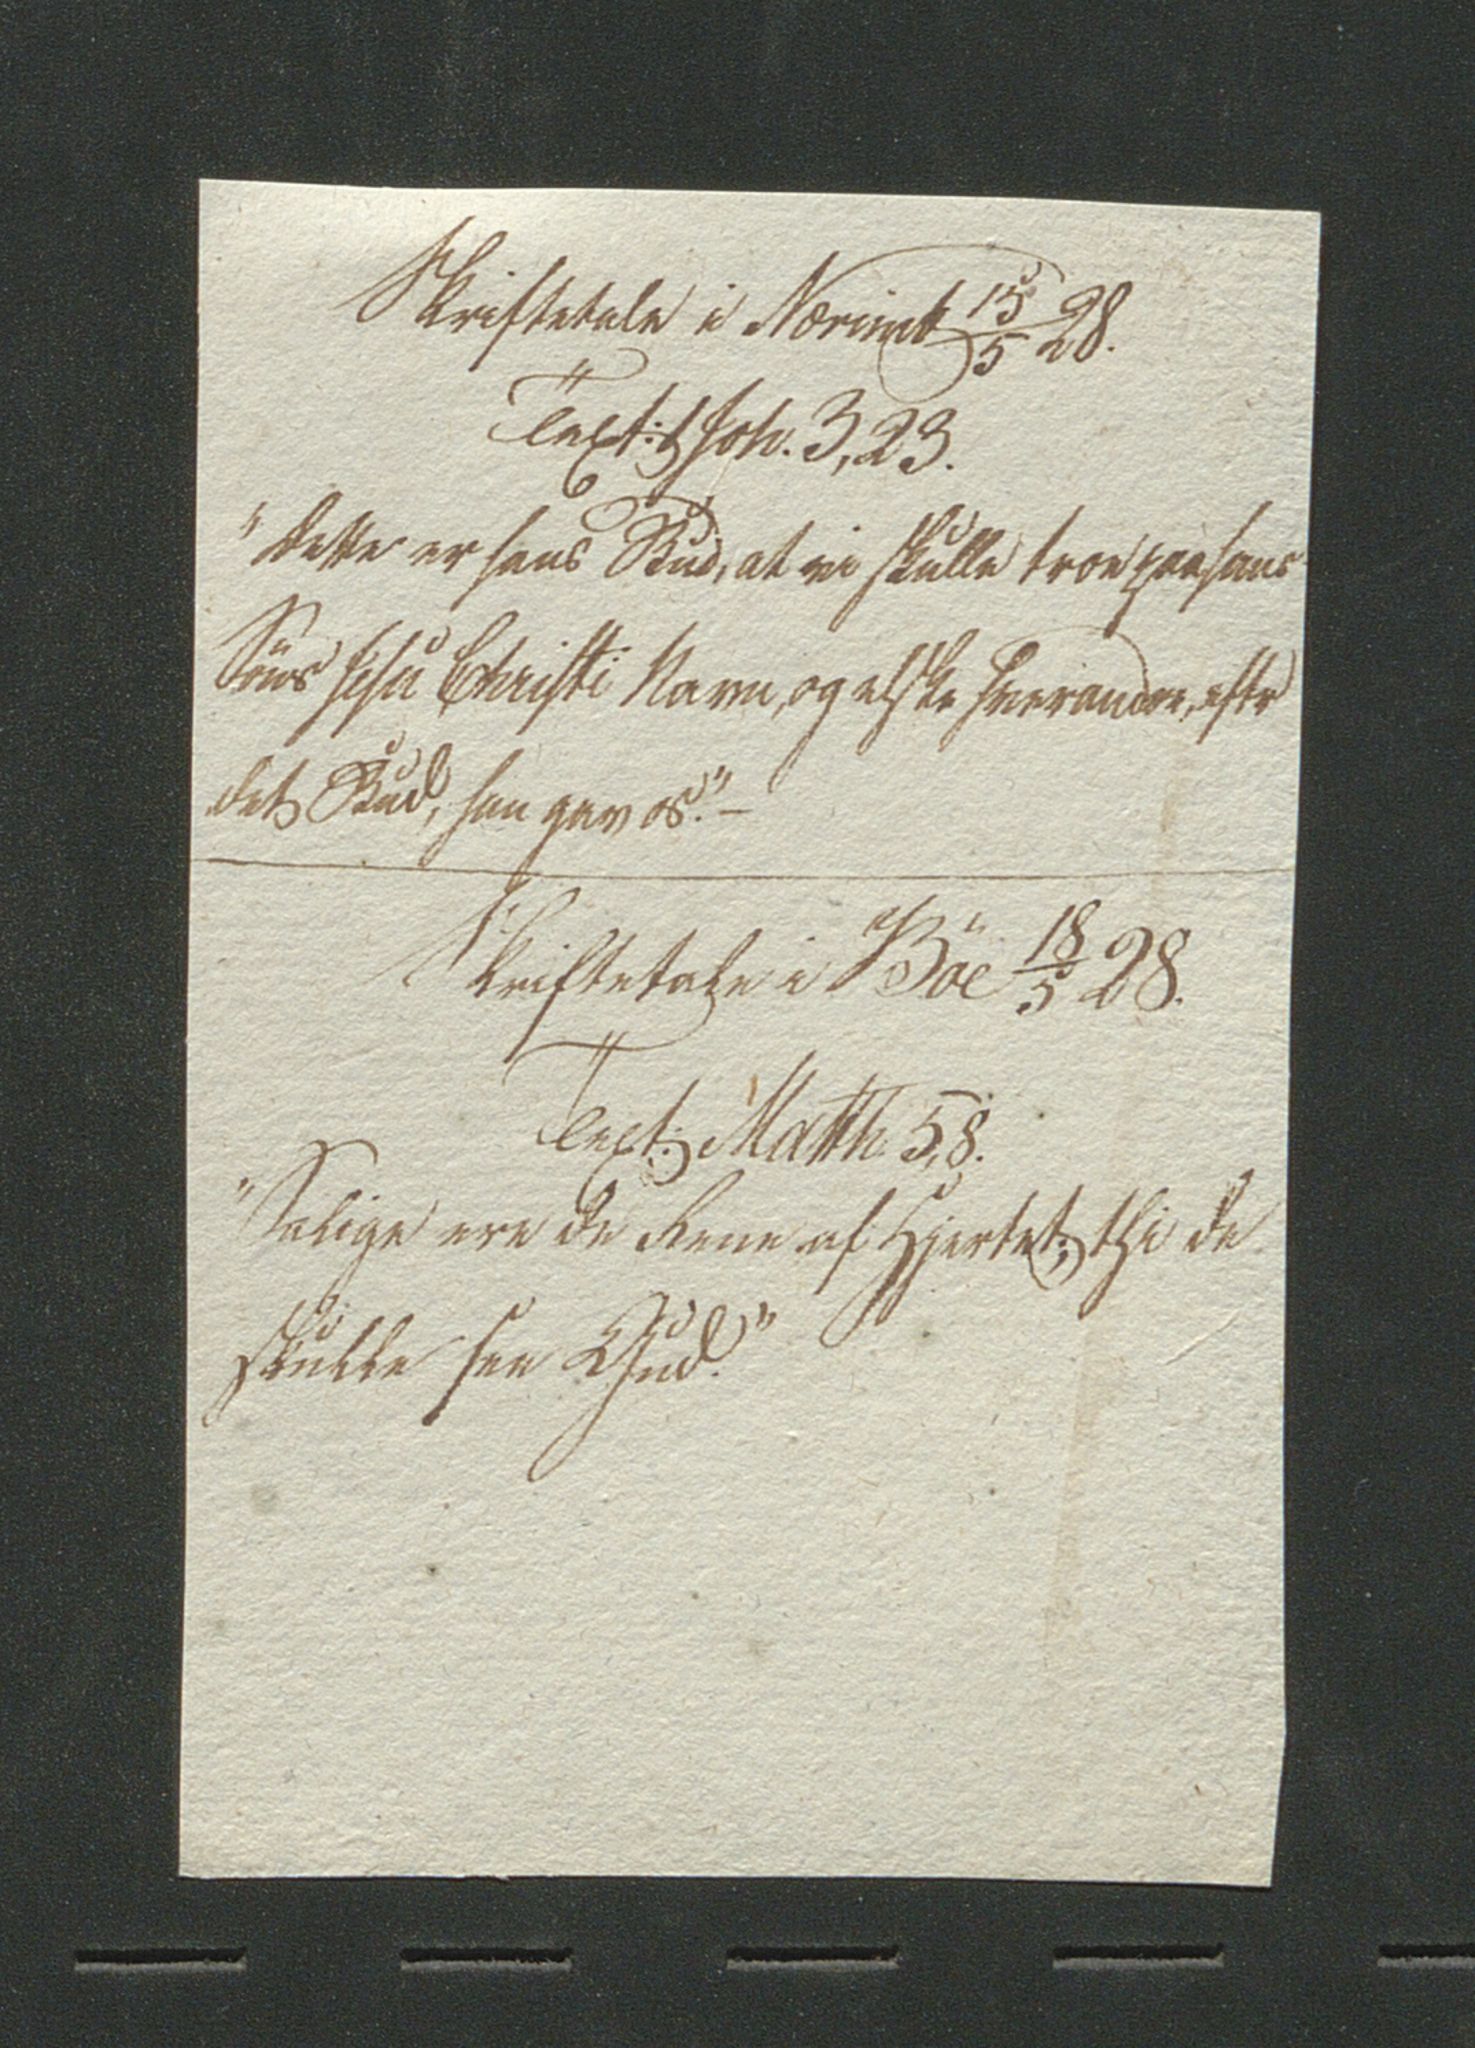 Skriftetale i Nærimb 15/5 28.
Text: 1 Joh. 3, 23.
"Dette er hans Bud, at vi skulle troe paa hans
Söns Jesu Christi Navn, og elske hverandre, efter
det Bud, han gav os." –
Skriftetale i Böe 18/5 28.
Text: Matth. 5, 8.
"Salige ere de Rene af Hjertet; thi de
skulle see Gud."